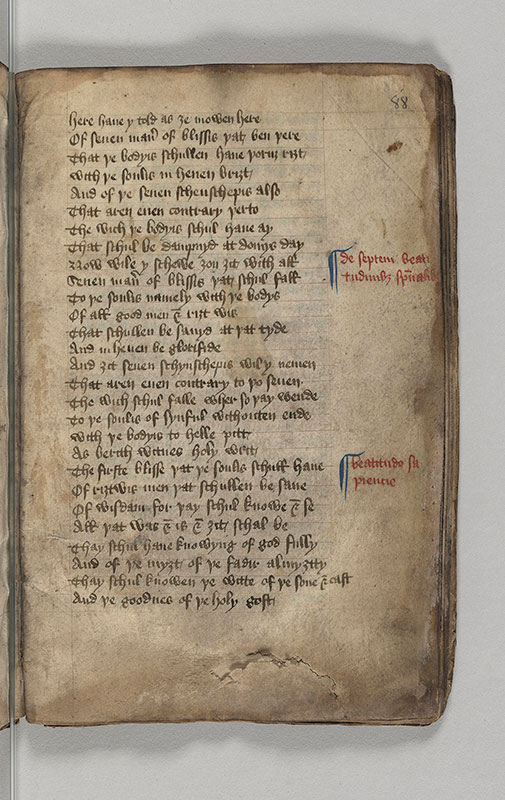 88
here haue y told as ȝe mowen here
Of seuen man̄ of blissis yat ben yere
That ye bodyis schullen haue yoruȝ riȝt
with ye soulis in heuen briȝt
And of ye seuen schenschepis also
That aren euen contrary yerto
The wich ye bodyis schul haue ay
That schul be dampnyd at domys day
Now wile y schewe ȝou ȝit with all
Seuen man̄ of blissis yat schul fall
To ye soulis namely with ye bodys
Of all good men & riȝt wis
That schullen be sauyd at yat tyde
And in heuen be glorifide
And ȝit seuen schynschepis wil y nemen
That aren euen contrary to yo seuen
The wich schul falle wher so yay wende
To ye soulis of synful withouten ende
with ye bodyis to helle pitt
As berith witnes holy writt
The firste blisse yat ye soulis schull haue
Of riȝtwis men yat schullen be saue
Of wisdam for yay schul knowe & se
All yat was & is & ȝit schal be
Thay schul haue knowyng of god fully
And of ye myȝt of ye fadir almyȝtty
Thay schul knowen ye witte of ye sone & cast
And ye goodnes of ye holy gost
de septem beati
tudinibȝ sp̄ualibȝ
beatitudo sa
piencie